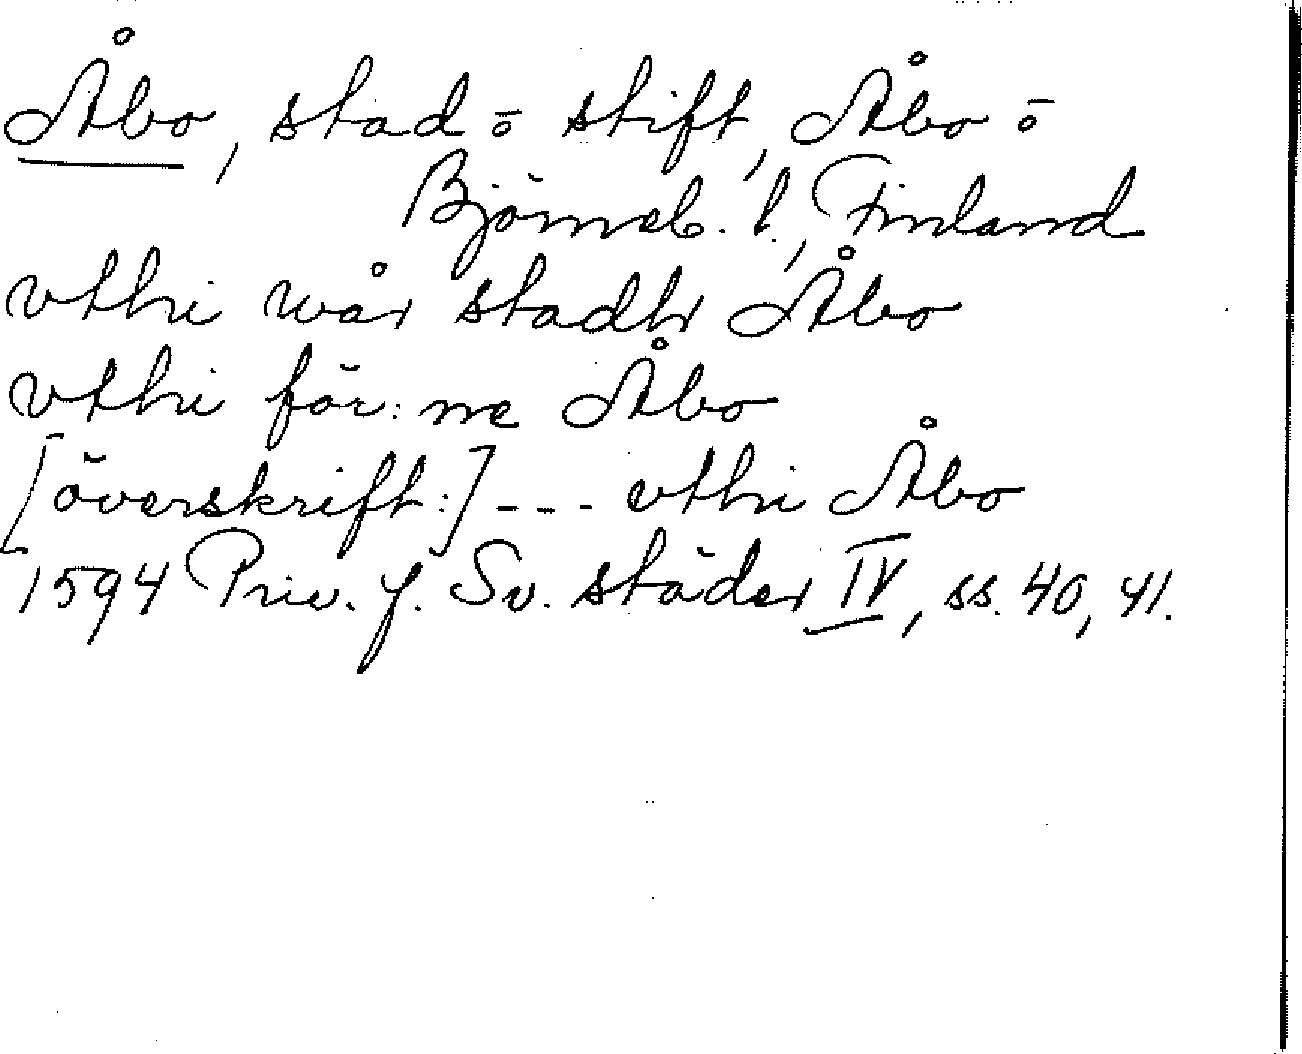 Åbo, stad o stift, Åbo o
Björneb. l., Finland
vthi wår stadh Åbo
vthi för:ne Åbo
[överskrift:] --- vthi Åbo
1594 Priv. f. Sv. städer IV, ss. 40, 41.